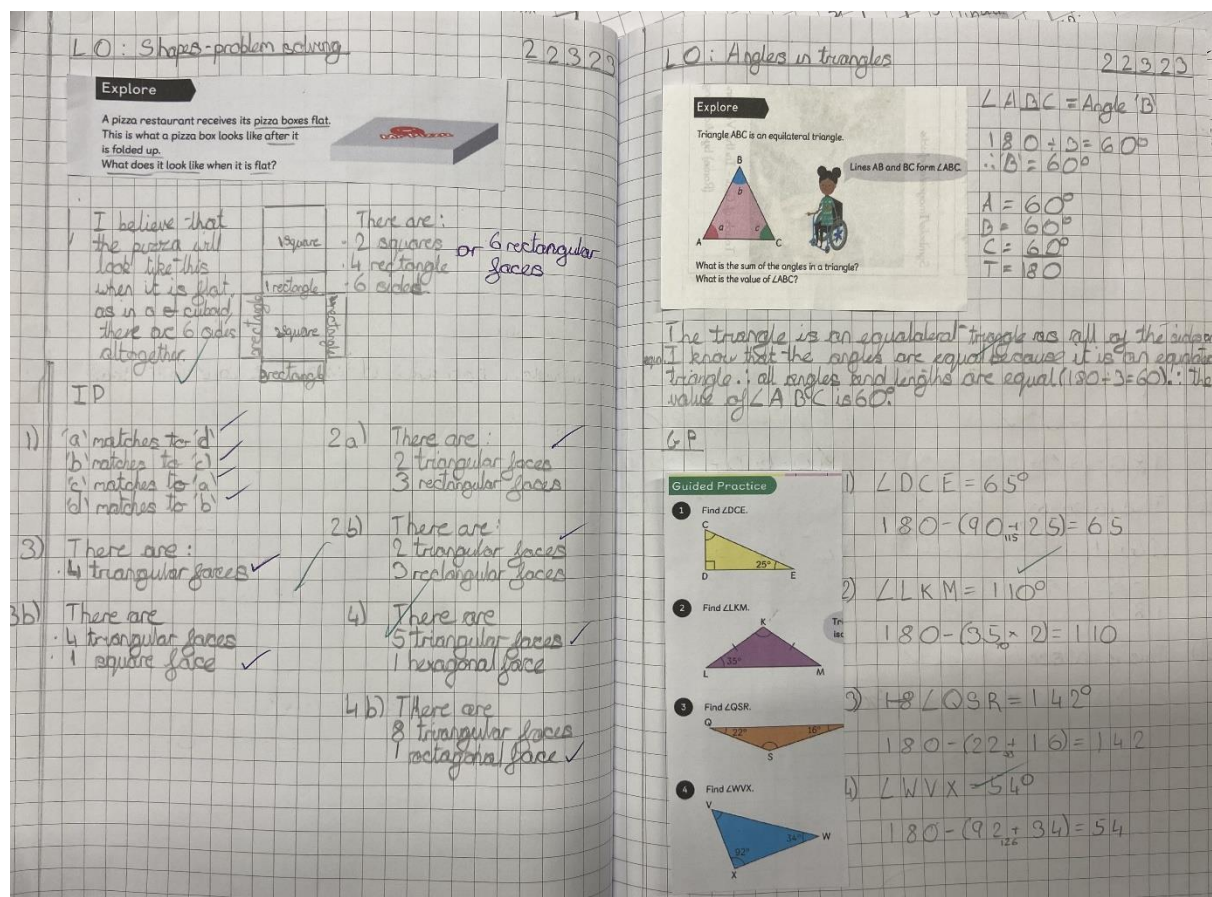 LO: Shapes-problem solving
22323
Explore
A pizza restaurant receives its pizza boxes flat.
This is what a pizza box looks like after it
is folded up.
What does it look like when it is flat?
I believe that
the pizza will
look like this
when it is flat,
as in a cuboid,
there are 6 sides
altogether.
1 square
1 rectangle
1 rectangle
1 square
1 rectangle
1 rectangle
There are:
· 2 squares
· 4 rectangle
· 6 sides
or 6 rectangular
faces
IP
1) 'a' matches to 'd'
'b' matches to 'c'
'c' matches to 'a'
'd' matches to 'b'
2a) There are:
2 triangular faces
3 rectangular faces
2b) There are:
2 triangular faces
3 rectangular faces
3) There are:
· 4 triangular faces
3b) There are
· 4 triangular faces
· 1 square face
4) There are
5 triangular faces
1 hexagonal face
4b) There are
8 triangular faces
1 octagonal face
LO: Angles in triangles
22323
Explore
Triangle ABC is an equilateral triangle.
B
b
a
c
A
C
Lines AB and BC form ∠ABC.
What is the sum of the angles in a triangle?
What is the value of ∠ABC?
∠ABC = Angle 'B'
180 ÷ 3 = 60°
∴ B = 60°
A = 60°
B = 60°
C = 60°
T = 180
The triangle is an equalateral triangle as all of the sides are
equal. I know that the angles are equal because it is an equilate
triangle ∴ all angles and lengths are equal (180÷3=60) ∴ the
value of ∠ABC is 60°.
GP
Guided Practice
1 Find ∠DCE.
C
25°
D
E
2 Find ∠LKM.
K
35°
L
M
Tri
isc
3 Find ∠QSR.
Q
22°
16°
S
4 Find ∠WVX.
V
34°
W
92°
X
1) ∠DCE = 65°
180-(90+25)=65
115
2) ∠LKM = 110°
180-(35×2)=110
70
3) 18 ∠QSR = 142°
180-(22+16)=142
38
4) ∠WVX = 54°
180-(92+34)=54
126